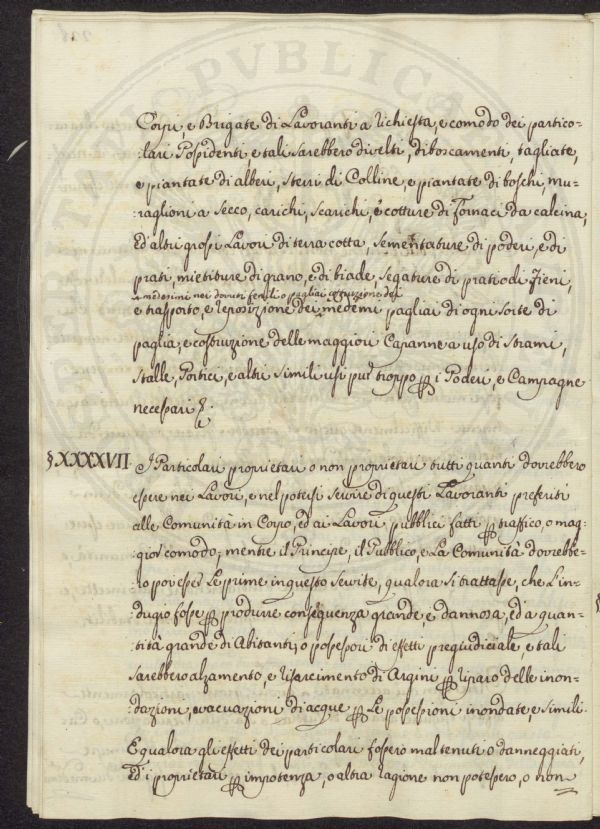 Corpi, e Brigate di Lavoranti a richiesta, e comodo dei partico-
lari Possidenti e tali sarebbero divelti, diboscamenti, tagliate,
e piantate di alberi, sterri di Colline, e piantate di boschi, mu-
raglioni a secco, carichi, scarichi, e cotture di Fornaci da calcina,
ed altri grossi Lavori di terra cotta, sementature di poderi, e di
prati, mietiture di grano, e di biade, segature di prati o di Fieni,
e medesimi nei dovuti fenili o pagliai costruzione dei
e trasporto, e reposizione dei medemi pagliai di ogni sorte di
paglia, e costruzione delle maggiori Capanne a uso di strami,
stalle, Portici, e altri simili usi pur troppo p i Poderi, e Campagne
necessari
§XXXXVII I Particolari proprietari o non proprietari tutti quanti dovrebbero
essere nei Lavori, e nel potersi servire di questi Lavoranti preferiti
alle Comunità in Corpo, ed ai Lavori pubblici fatti p traffico, o mag-
gior comodo; mentre il Principe, il Pubblico, e La Comunità dovrebbe-
ro poi esser Le prime in questo servite, qualora si trattasse, che L'in-
dugio fosse p produrre conseguenza grande e dannosa, ed a quan-
tità grande di Abitanti, o possessori di effetti pregiudiciale, e tali
sarebbero alzamento, e risarcimento di Argini p riparo delle inon-
dazioni, evacuazioni di acque p Le possessioni inondate, e simili
E qualora gli effetti dei particolari fossero mal tenuti o danneggiati,
ed i proprietari p impotenza, o altra ragione non potessero, o non